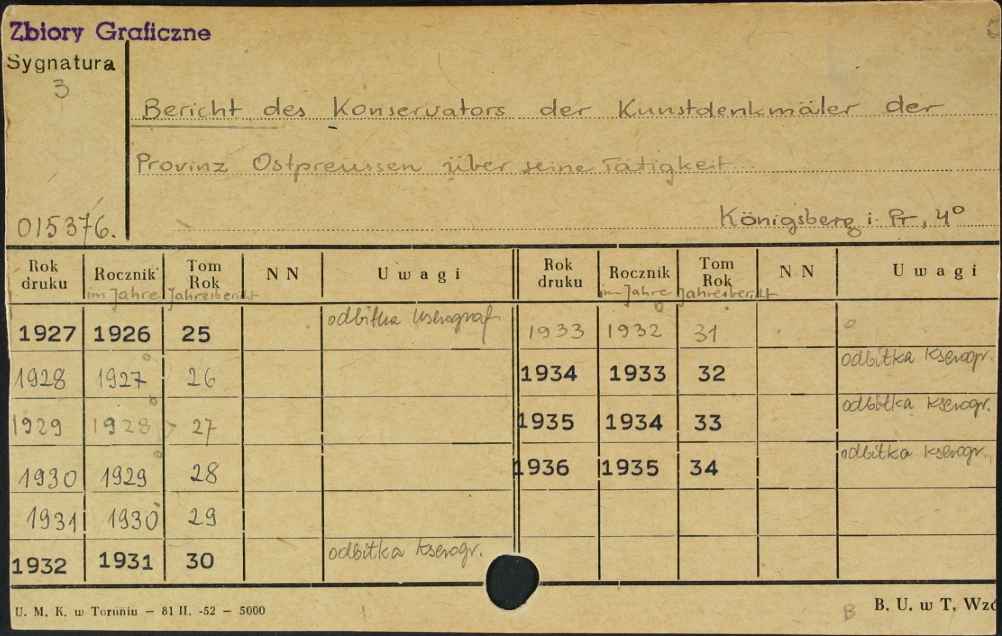 Zbiory Graficzne
Sygnatura
3
Bericht des Konservators der Kunstdenkmäler der
Provinz Ostpreussen über seine Tätigkeit
Königsberg i. Pr., 4°
015376.
Rok druku Rocznik Tom Rok N N Uwagi Rok druku Rocznik Tom Rok N N Uwagi
im Jahre Jahresbericht im Jahre Jahresbericht
1927 1926 25 odbitka kserograf. 1933 1932 31
1928 1927 26 1934 1933 32 odbitka kserogr.
1929 1928 27 1935 1934 33 odbitka kserogr.
1930 1929 28 1936 1935 34 odbitka kserogr.
1931 1930 29
1932 1931 30 odbitka kserogr.
U. M. K. w Toruniu – 81 II. -52 – 5000
B
B. U. w T. Wzó